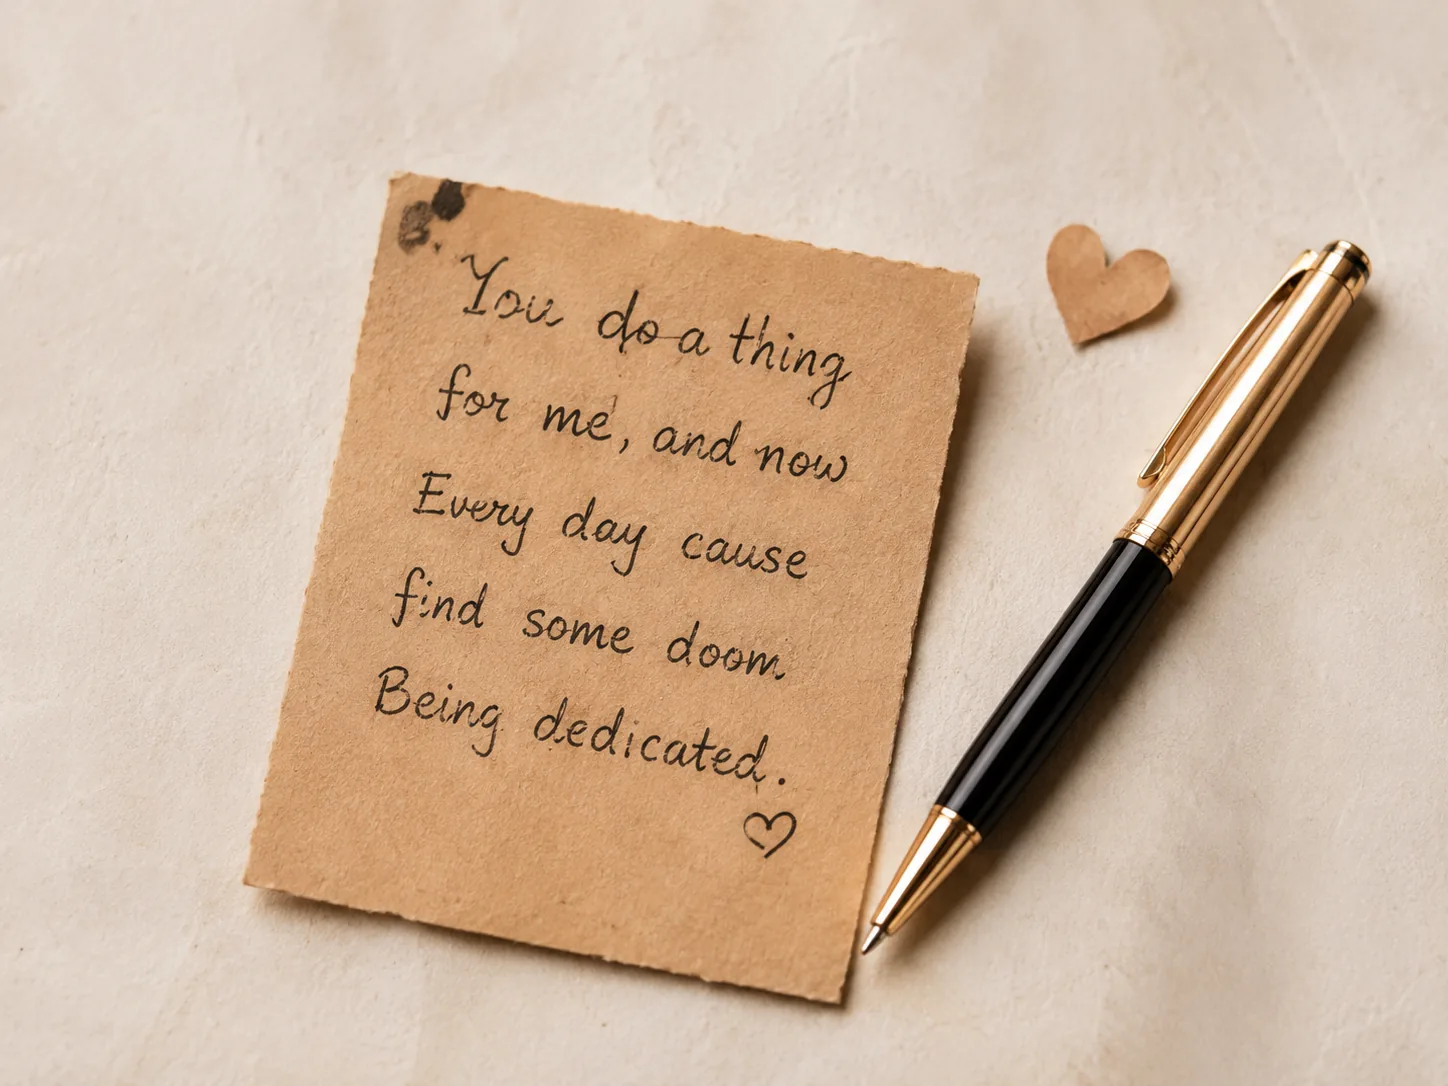 You do a thing
for me, and now
Every day cause
find some doom
Being dedicated.